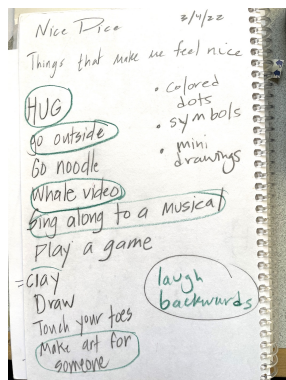 Nice Dice
3/4/22
Things that make me feel nice
HUG
go outside
Go noodle
Whale video
Sing along to a musical
Play a game
= clay
Draw
Touch your toes
Make art for
someone
• colored
dots
• symbols
• mini
drawings
laugh
backwurds